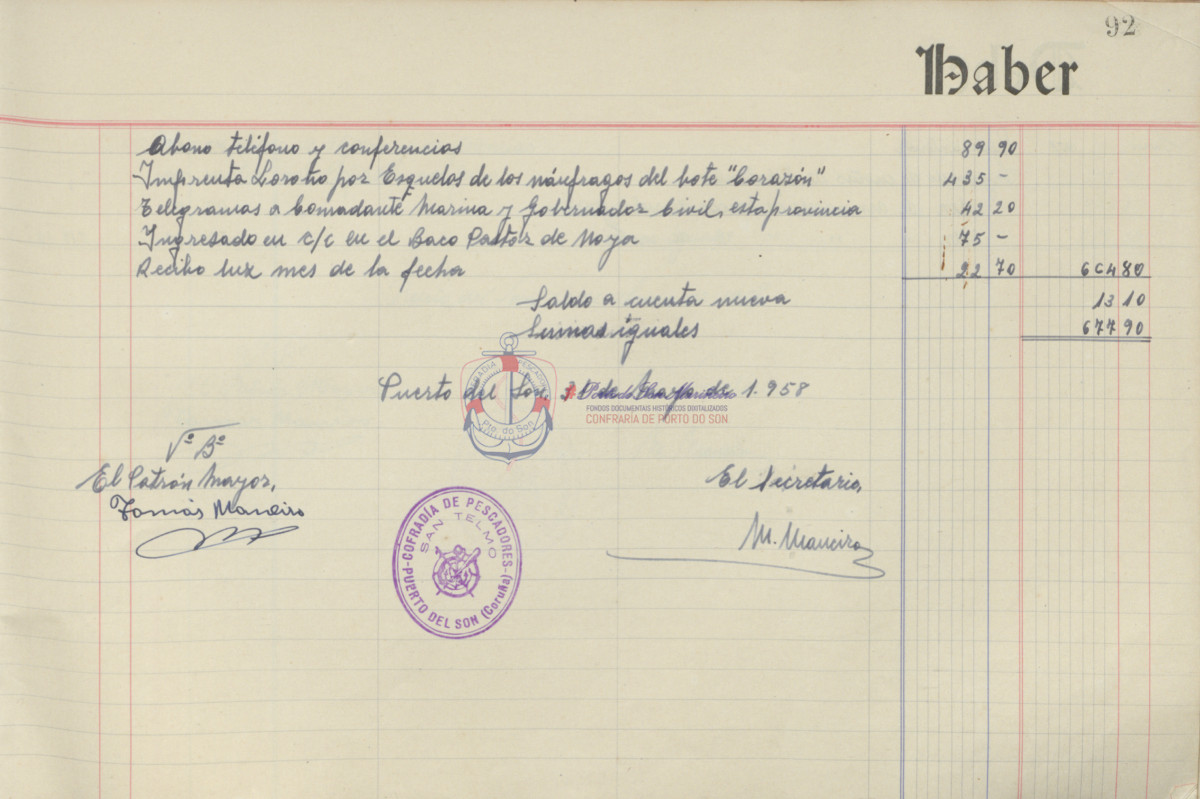 92
Haber
Abono teléfono y conferencias 89 90
Imprenta por Esquelas de los náufragos del bote "Corazón" 435 -
Telegramas a Comadante Marina y Gobernador Civil, esta provincia 42 20
Ingresado en c/c en el Baco Pastor de Noya 75 -
Recibo luz mes de la fecha 22 70 664 80
Saldo a cuenta nueva 13 10
Sumas iguales 677 90
Puerto del Son, 31 de Mayo de 1.958
FONDOS DOCUMENTAIS HISTÓRICOS DIXITALIZADOS
CONFRARÍA DE PORTO DO SON
COFRADIA PESCADORES
Pto. do Son
Vº Bº
El Patrón Mayor,
Tomás Maneiro
El Secretario,
M. Maneiro
COFRADÍA DE PESCADORES
SAN TELMO
PUERTO DEL SON (Coruña)